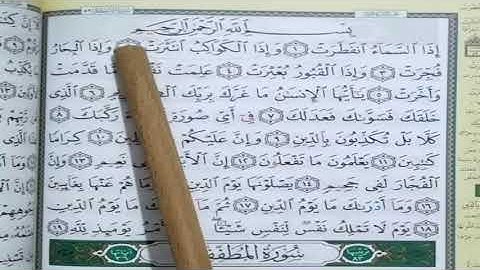 بِسْمِ ٱللَّهِ ٱلرَّحْمَٰنِ ٱلرَّحِيمِ
إِذَا ٱلسَّمَآءُ ٱنفَطَرَتْ ١ وَإِذَا ٱلْكَوَاكِبُ ٱنتَثَرَتْ وَإِذَا ٱلْبِحَارُ
فُجِّرَتْ ٣ وَإِذَا ٱلْقُبُورُ بُعْثِرَتْ ٤ عَلِمَتْ مَّا قَدَّمَتْ
وَأَخَّرَتْ ٥ يَٰٓأَيُّهَا ٱلْإِنسَٰنُ مَا غَرَّكَ بِرَبِّكَ ٦ ٱلَّذِى
خَلَقَكَ فَسَوَّىٰكَ فَعَدَلَكَ ٧ فِىٓ أَىِّ صُورَةٍ رَكَّبَكَ ٨
كَلَّا بَلْ تُكَذِّبُونَ بِٱلدِّينِ ٩ وَإِنَّ عَلَيْكُمْ ١٠ كِرَامًا
كَٰتِبِينَ ١١ يَعْلَمُونَ مَا تَفْعَلُونَ ١٢ إِنَّ نَعِيمٍ ١٣ وَإِنَّ
ٱلْفُجَّارَ لَفِى جَحِيمٍ ١٤ يَصْلَوْنَهَا يَوْمَ ٱلدِّينِ هُمْ عَنْهَا بِغَآئِبِينَ
١٦ وَمَآ أَدْرَىٰكَ مَا يَوْمُ ٱلدِّينِ ١٧ ثُمَّ مَا يَوْمُ ٱلدِّينِ
١٨ يَوْمَ لَا تَمْلِكُ نَفْسٌ لِّنَفْسٍ شَيْـًٔا يَوْمَئِذٍ لِّلَّهِ
سُورَةُ